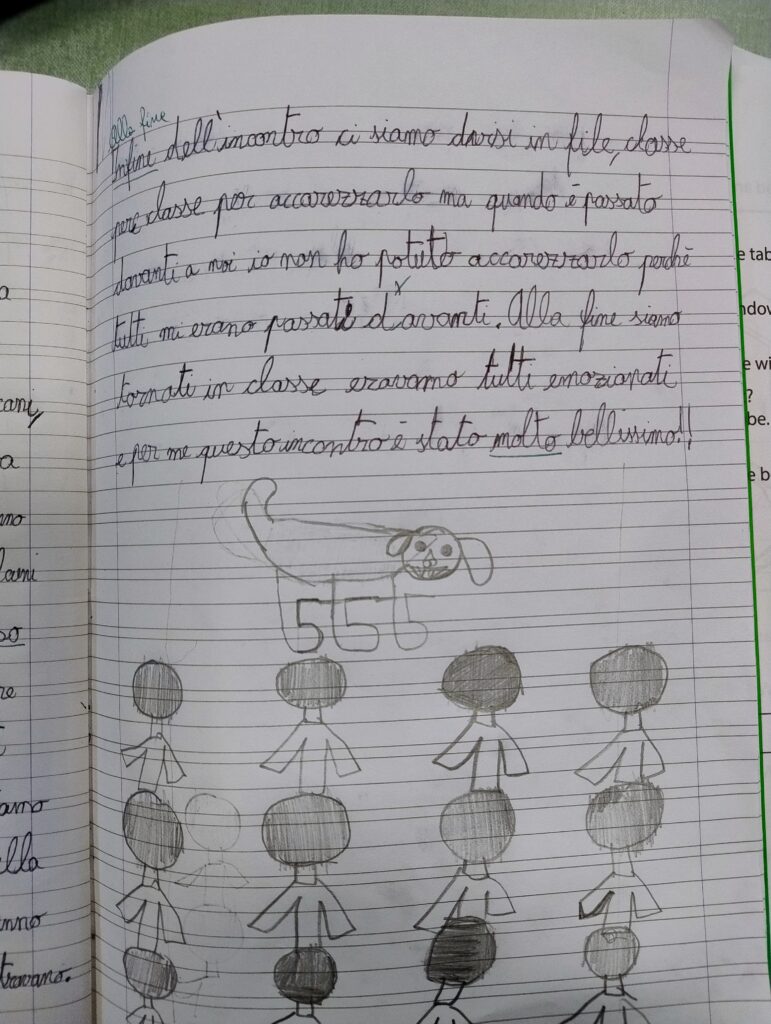 Alla fine
Infine dell'incontro ci siamo divisi in file, classe
pere classe per accarezzarlo ma quando è passato
davanti a noi io non ho potuto accarezzarlo perchè
tutti mi erano passati d'avanti. Alla fine siamo
tornati in classe eravamo tutti emozionati
e per me questo incontro è stato molto bellissimo!!
a
cani,
a
ano
lami
so
re
amo
lla
nno
travano.
e tab
ndow
e wi
?
be.
e b